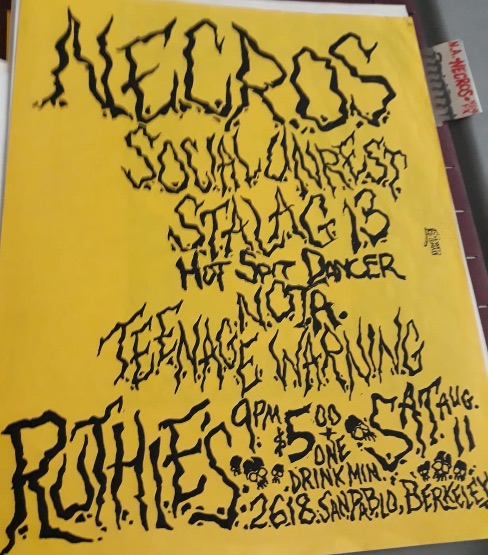 NECROS
SOCIAL UNREST
STALAG 13
HOT SPIT DANCER
NOTR.
TEENAGE WARNING
RUTHIE'S
9PM
$5.00
+
ONE
DRINK MIN.
SAT. AUG.
11
2618. SAN PABLO, BERKELEY
NECROS